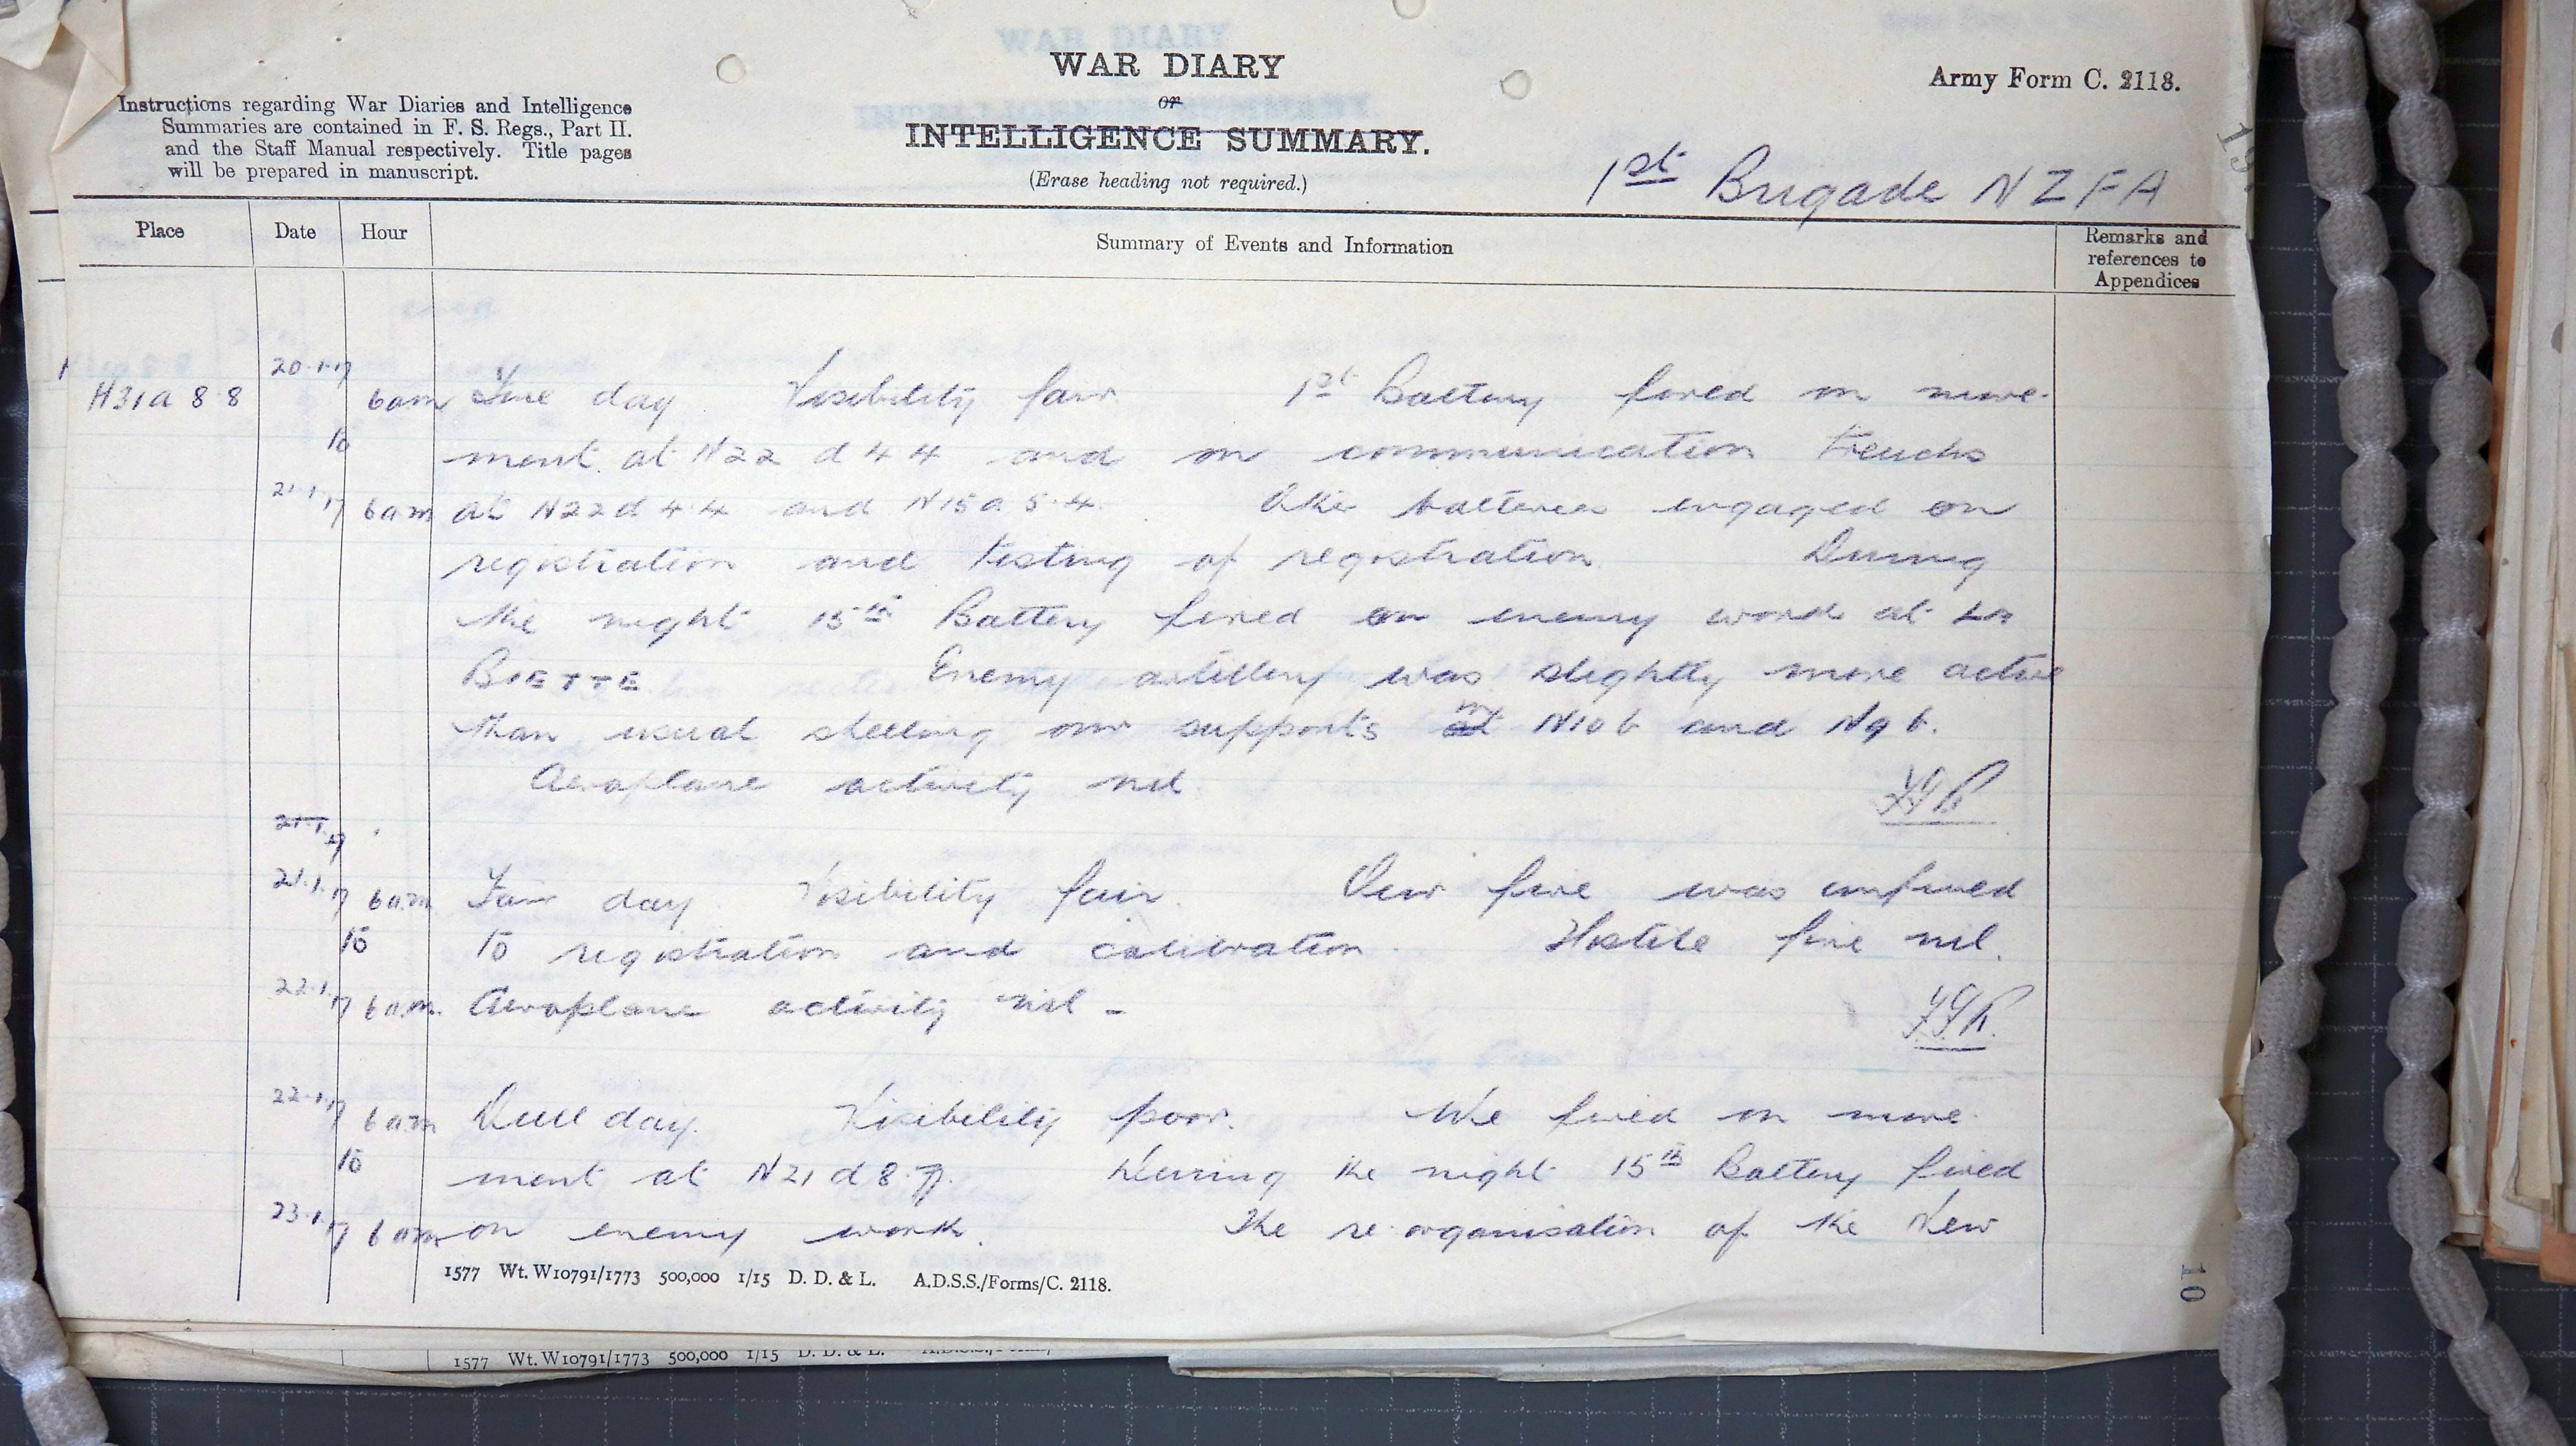 WAR DIARY
or
INTELLIGENCE SUMMARY.
(Erase heading not required.)
Army Form C. 2118.
Instructions regarding War Diaries and Intelligence
Summaries are contained in F. S. Regs., Part II.
and the Staff Manual respectively. Title pages
will be prepared in manuscript.
1st Brigade NZFA
Place Date Hour Summary of Events and Information Remarks and
references to
Appendices
20.1.17
H31a 8 8 6am Fine day. Visibility fair 1st Battery fired on move-
to ment at N22 d 4 4 and on communication trenchs
21.1.17 6am at N22d 4.4 and N15a 5.4. Other batteries engaged on
registration and testing of registration. During
the night 15th Battery fired on enemy work at LA
BIETTE. Enemy artillery was slightly more active
than usual shelling our supports at in N10b and N9b.
Aeroplane activity nil
21.1.17
21.1.17 6am Fair day. Visibility fair. Our fire was confined
to to registration and calibration. Hostile fire nil.
22.1.17 6am. Aeroplane activity nil -
22.1.17 6am Dull day. Visibility poor. We fired on move-
to ment at N21 d 8.7. During the night 15th Battery fired
23.1.17 6am on enemy work. The re-organisation of the New
1577 Wt. W10791/1773 500,000 1/15 D. D. & L. A.D.S.S./Forms/C. 2118.
10
1577 Wt. W10791/1773 500,000 1/15 D. D. & L.